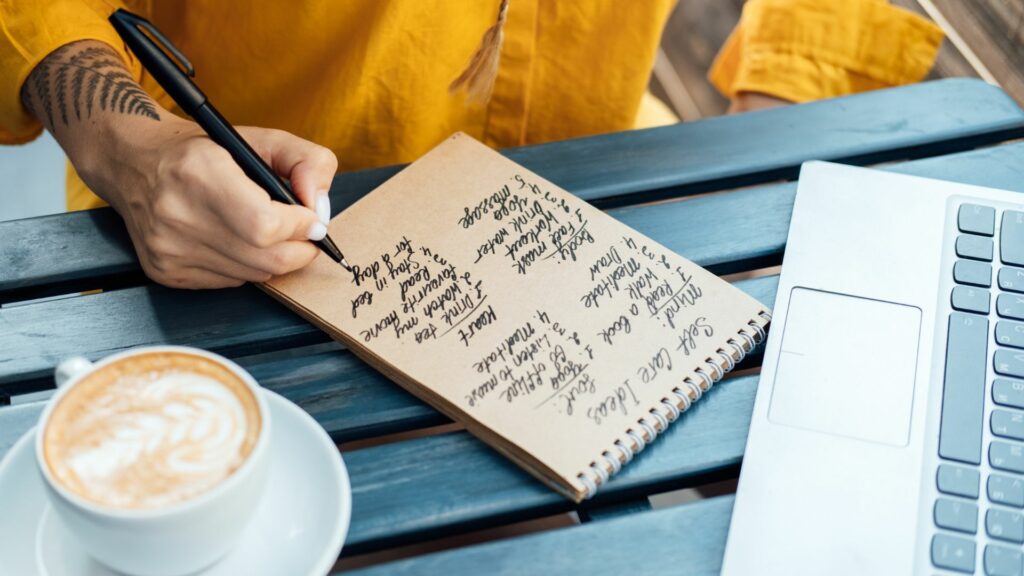 Self Care Ideas
Mind:
1. Read a book
2. Walk
3. Meditate
4. Draw
Soul:
1. Go offline
2. Yoga
3. Listen to music
4. Meditate
Body:
1. Face mask
2. Workout
3. Drink water
4. Yoga
5. Massage
Heart
1. Drink tea
2. Watch my
favourite movie
3. Read
4. Stay in bed
for a day